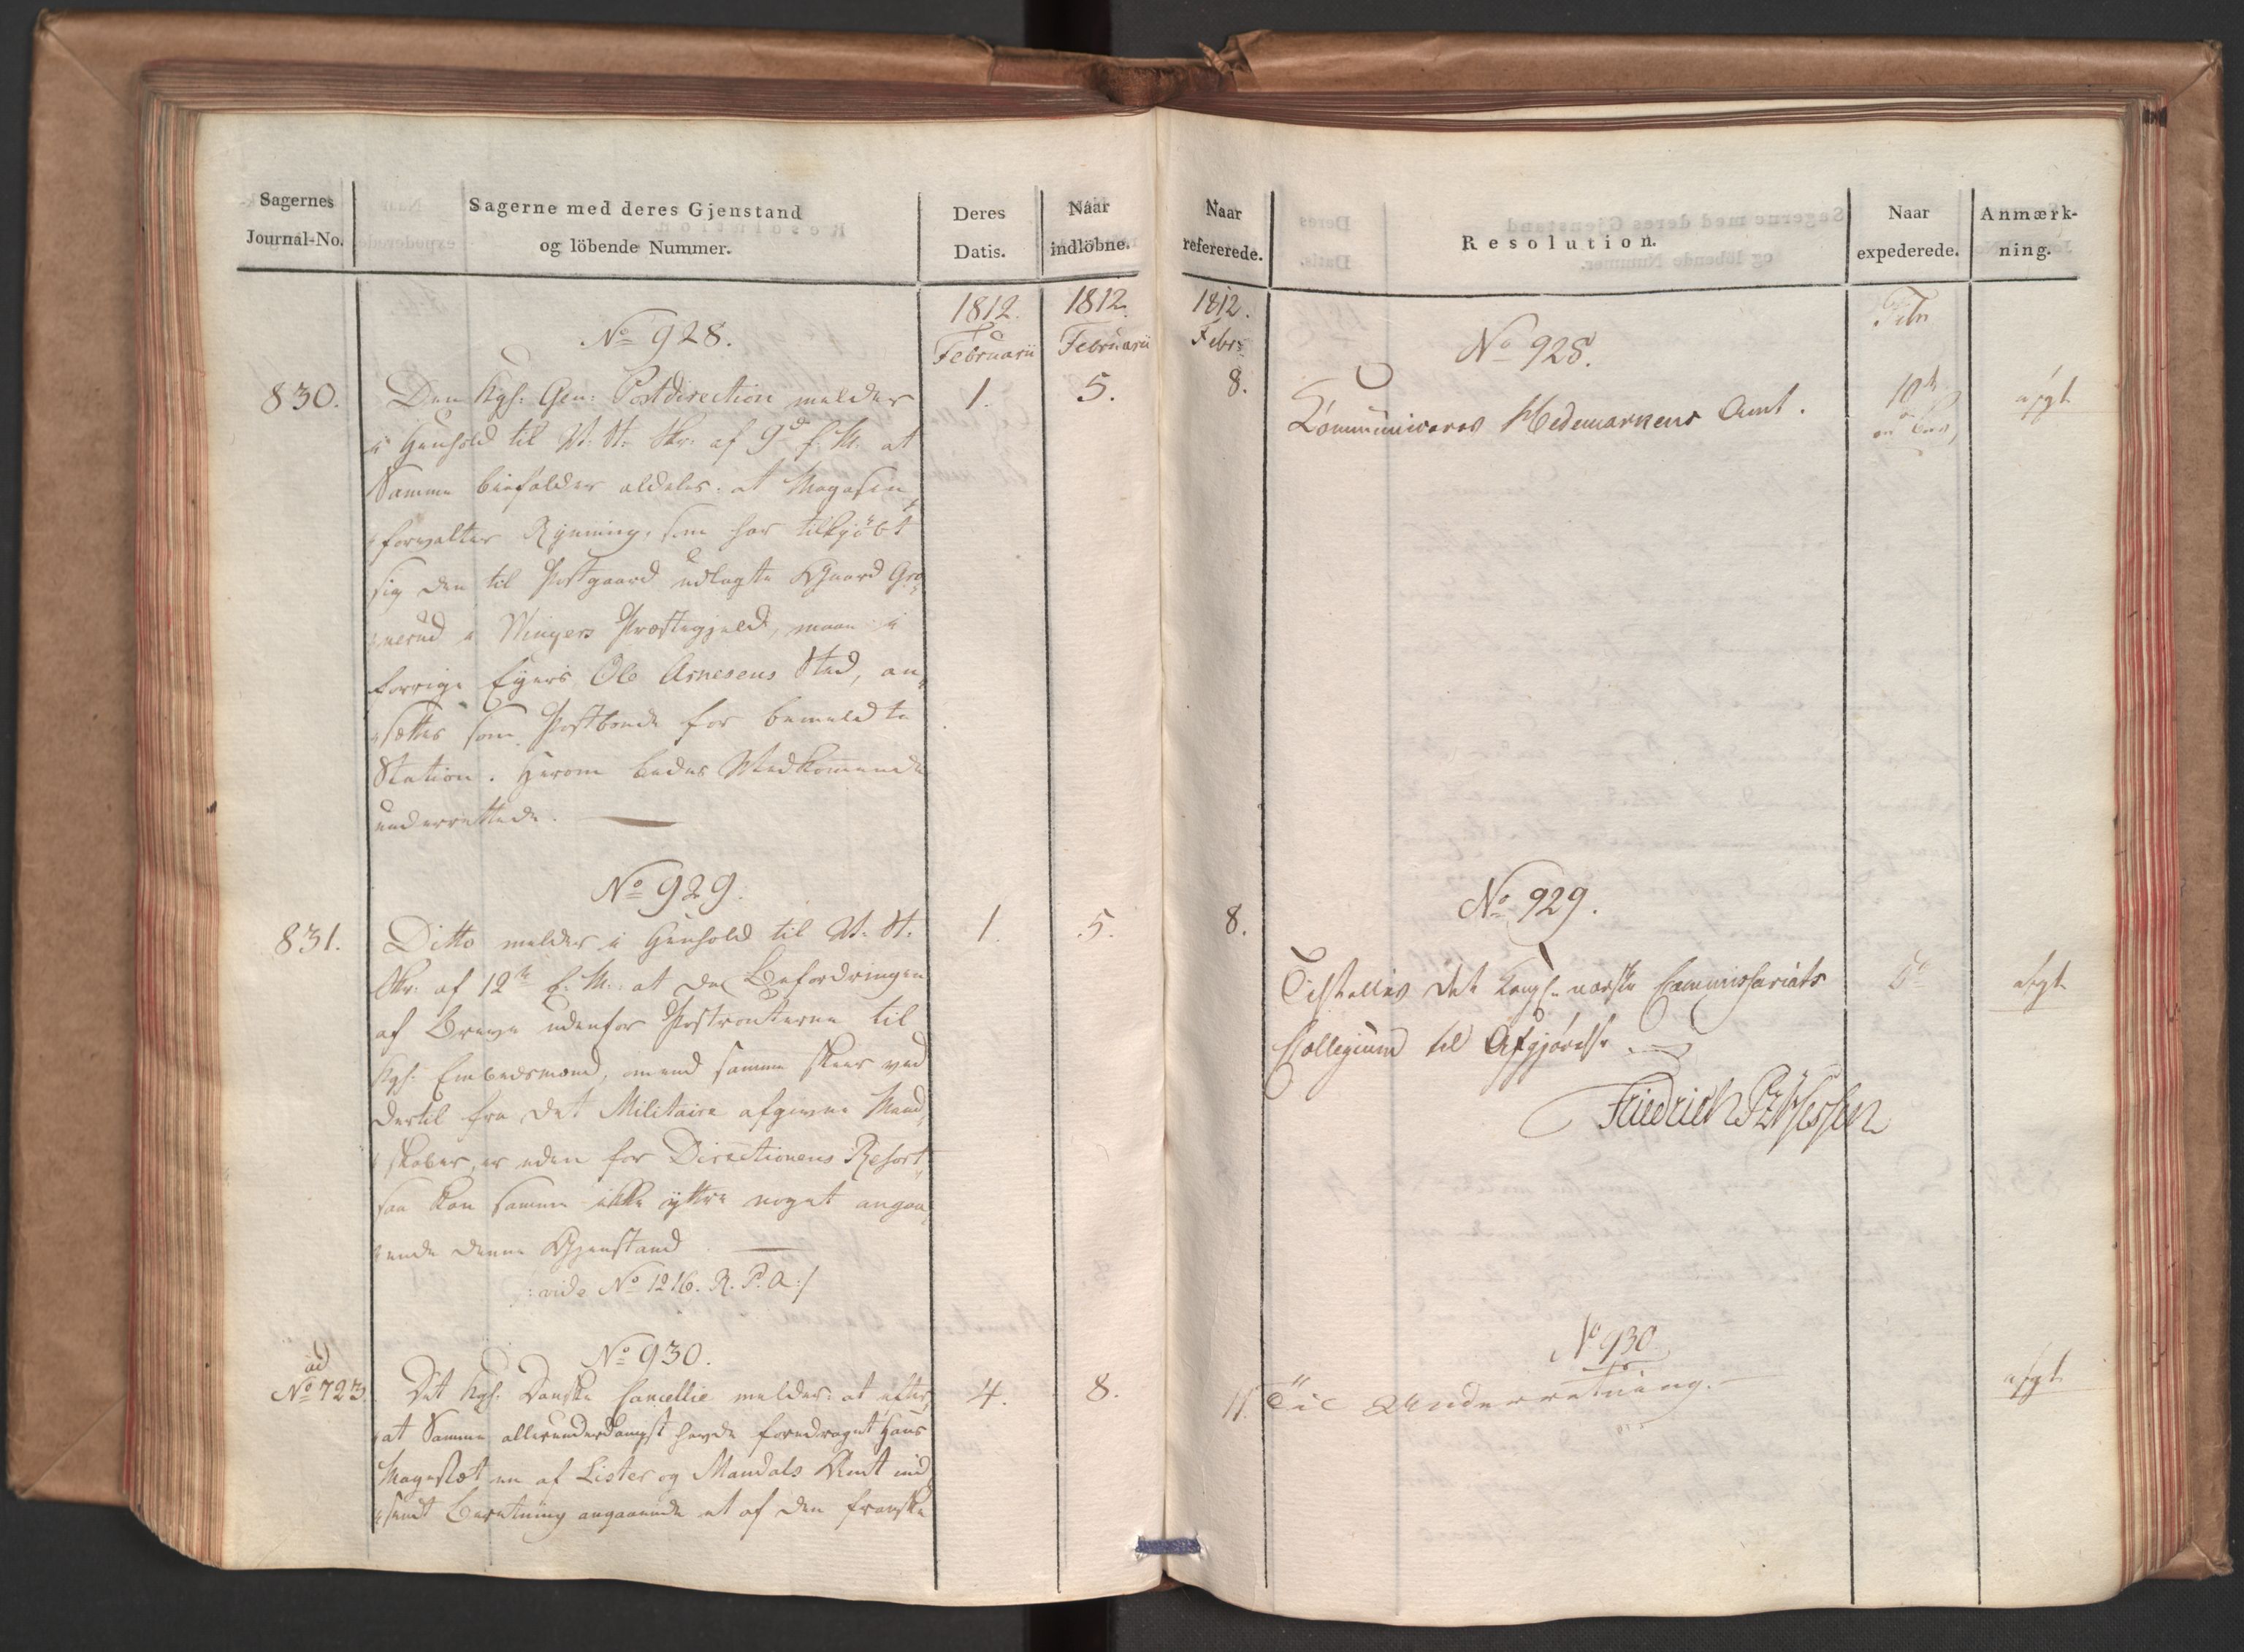 Sagernes
Journal-No.
Sagerne med deres Gjenstand
og löbende Nummer.
Deres
Datis.
Naar
indlöbne.
1812.
Februarii
1812.
Februarii
No 928.
830.
Den Kgl. Gen: Postdirection melder
1.
5.
i Henhold til V. St. Skr. af 9de f. M. at
Samme biefalder aldeles: at Magasin
forvalter Rynning, som har tilkjöbt
sig den til Postgaard udlagte Gaard Gro
nerud i Wingers Præstegjeld, maae i
forrige Eyers Ole Arnesens Sted, an
sættes som Postbonde for bemeldte
Station. Herom bedes Vedkommende
underrettede.
No 929.
831.
Ditto melder i Henhold til V. St.
1.
5.
Skr. af 12te f. M. at da Befordringen
af Breve udenfor Postrouterne til
Kgl. Embedsmænd, omend samme skeer ved
dertil fra det Militaire afgivne Mand
skaber, er uden for Directionens Resort
saa kan samme ikke yttre noget angaa
ende denne Gjenstand.
/: vide No 1216. R. P. A :/
No 930.
ad
No 723.
Det Kgl. Danske Cancellie melder: at efter
4.
8.
at Samme allerunderdanigst havde foredraget Hans
Majestæt en af Lister og Mandals Amt ind
sendt Beretning angaaende et af den franske
Naar
refererede.
Resolution.
Naar
expederede.
Anmærk-
ning.
1812.
Febr.
Febr
No 928.
8.
Communiceres Hedemarkens Amt.
10de
afgt.
No 929.
8.
Tilstilles det kongl. norske Commissariats
do
afgt.
Collegium til Afgjörelse
Friedrich PzHessen
No 930
11.
Til Underretning.
afgt.